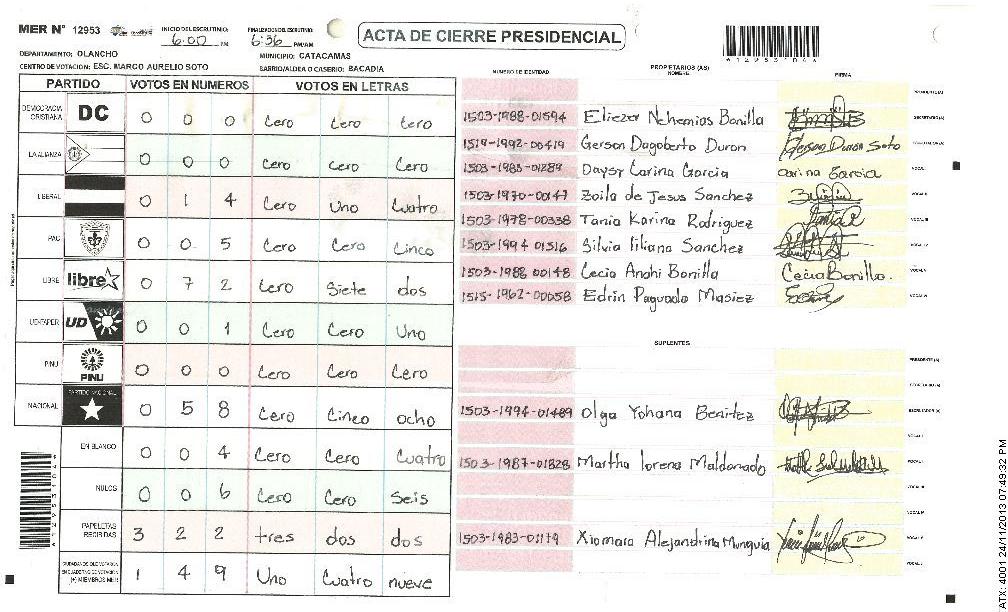 MER N° 12953
INICIO DEL ESCRUTINIO: 6:00 PM
FINALIZACION DEL ESCRUTINIO: 6:36 PM/AM
ACTA DE CIERRE PRESIDENCIAL
*129530A*
DEPARTAMENTO: OLANCHO
MUNICIPIO: CATACAMAS
CENTRO DE VOTACION: ESC. MARCO AURELIO SOTO
BARRIO/ALDEA O CASERIO: BACADIA
PARTIDO VOTOS EN NUMEROS VOTOS EN LETRAS
DEMOCRACIA CRISTIANA DC 0 0 0 Cero Cero Cero
LA ALIANZA 0 0 0 Cero Cero Cero
LIBERAL 0 1 4 Cero Uno Cuatro
PAC 0 0 5 Cero Cero Cinco
LIBRE libre 0 7 2 Cero Siete dos
UD-FAPER UD 0 0 1 Cero Cero Uno
PINU PINU 0 0 0 Cero Cero Cero
NACIONAL PARTIDO NACIONAL 0 5 8 Cero Cinco ocho
EN BLANCO 0 0 4 Cero Cero Cuatro
NULOS 0 0 6 Cero Cero Seis
PAPELETAS RECIBIDAS 3 2 2 tres dos dos
CIUDADANOS QUE VOTARON EN CUADERNO DE VOTACION (+) MIEMBROS MER 1 4 9 Uno Cuatro nueve
NUMERO DE IDENTIDAD PROPIETARIOS (AS) NOMBRE FIRMA
PRESIDENTE (A)
1503-1988-01594 Eliezer Nehemias Bonilla SECRETARIO (A)
1519-1992-00419 Gerson Dagoberto Duron Gerson Duron Soto ESCRUTADOR (A)
1503-1983-01289 Daysy Carina Garcia Carina Garcia VOCAL I
1503-1970-00147 Zoila de Jesus Sanchez VOCAL II
1503-1978-00338 Tania Karina Rodriguez VOCAL III
1503-1994 01516 Silvia liliana Sanchez VOCAL IV
1503-1988 00148 Cecia Anghi Bonilla Cecia Bonilla. VOCAL V
1515-1962-00058 Edrin VOCAL VI
SUPLENTES
PRESIDENTE (A)
SECRETARIO (A)
1503-1994-01489 Olga Yohana Benitez ESCRUTADOR (A)
VOCAL I
1503-1987-01828 Martha lorena Maldonado VOCAL II
VOCAL III
VOCAL IV
1503-1983-01179 Xiomara Alejandrina Munguia VOCAL V
VOCAL
ATX: 4001 24/11/2013 07:49:32 PM